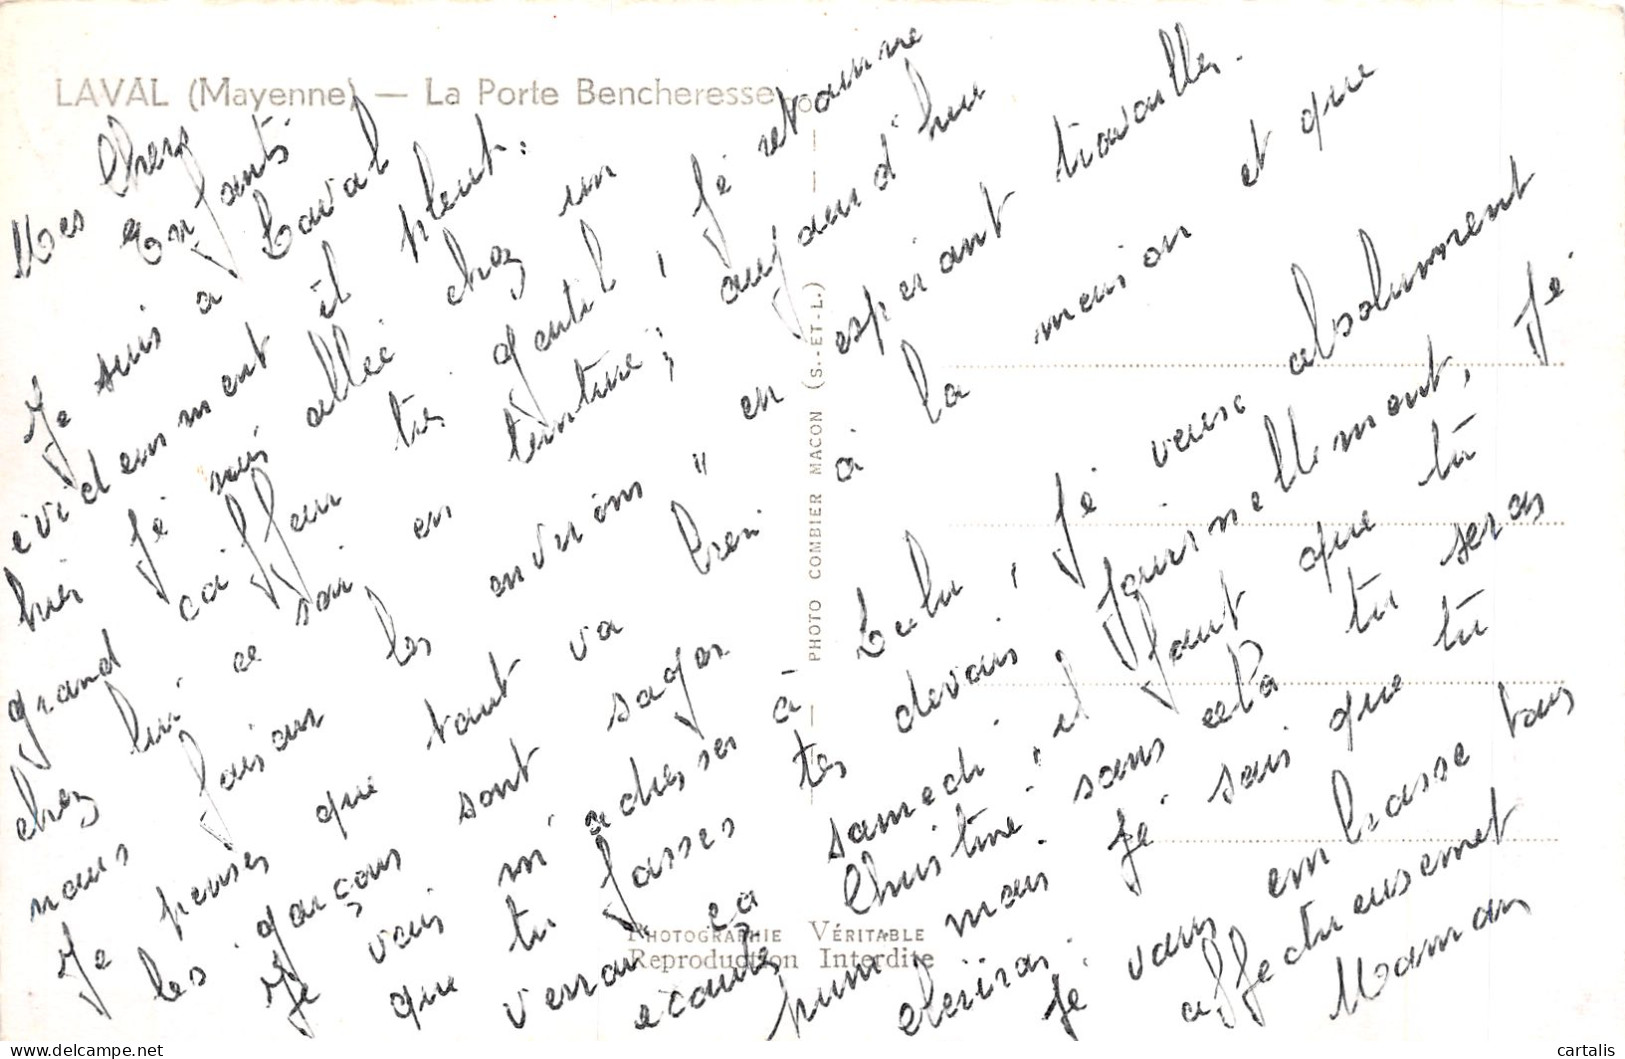 LAVAL (Mayenne) — La Porte Bencheresse
Mes Chers
Enfants
Je suis à Laval
évidemment il pleut.
hier je suis allée chez un
grand coiffeur très gentil, je retourne
chez lui ce soir en teinture; aujourd'hui
nous faisons les environs " en espérant travailler.
Je penses que tout va bien à la maison et que
les garçons sont sages
Je vais m'adresser à Lulu, je veux absolument
que tu fasses tes devoirs formellement, je
verrai ça samedi, il faut que tu
écoutes Christine sans cela tu seras
puni mais je sais que tu
obéiras.
Je vous embrasse tous
affectueusement
Maman
PHOTO COMBIER MACON (S.-ET-L.)
PHOTOGRAPHIE VÉRITABLE
Reproduction Interdite
cartalis
delcampe.net